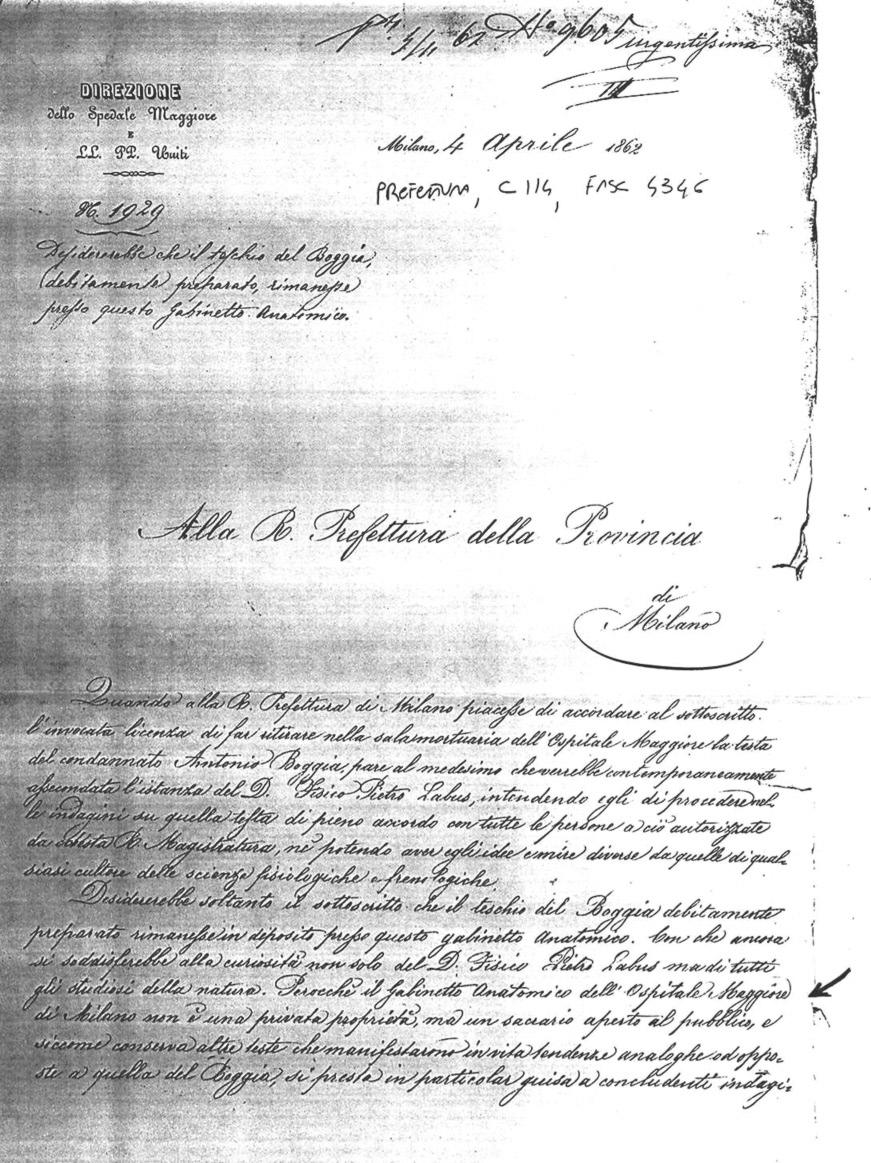 4/4 62 No 9605 urgentissima
III
DIREZIONE
dello Spedale Maggiore
E
LL. PP. Uniti
Milano, 4 Aprile 1862
PREFETTURA, C 114, FASC 4346
N. 1929
Desidererebbe che il teschio del Boggia,
(debitamente preparato, rimanesse
presso questo Gabinetto Anatomico.
Alla R. Prefettura della Provincia
di
Milano
Quando alla R. Prefettura di Milano piacesse di accordare al sottoscritto
l'invocata licenza di far ritirare nella sala mortuaria dell'Ospitale Maggiore la testa
del condannato Antonio Boggia, pare al medesimo che verrebbe contemporaneamente
assecondata l'istanza del D. Fisico Pietro Labus, intendendo egli di procedere nel-
le indagini su quella testa di pieno accordo con tutte le persone a ciò autorizzate
da codesta R. Magistratura, nè potendo aver egli idee e mire diverse da quelle di qual-
siasi cultore delle scienze fisiologiche e frenologiche.
Desidererebbe soltanto il sottoscritto che il teschio del Boggia debitamente
preparato rimanesse in deposito presso questo gabinetto Anatomico. Con che ancora
si soddisferebbe alla curiosità non solo del D. Fisico Pietro Labus ma di tutti
gli studiosi della natura. Perocchè il Gabinetto Anatomico dell'Ospitale Maggiore
di Milano non è una privata proprietà, ma un sacrario aperto al pubblico, e
siccome conserva altre teste che manifestarono in vita tendenze analoghe od oppo-
ste a quella del Boggia, si presta in particolar guisa a concludenti indagi-